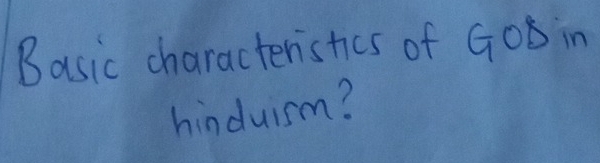 Basic characteristics of GOD in
hinduism?